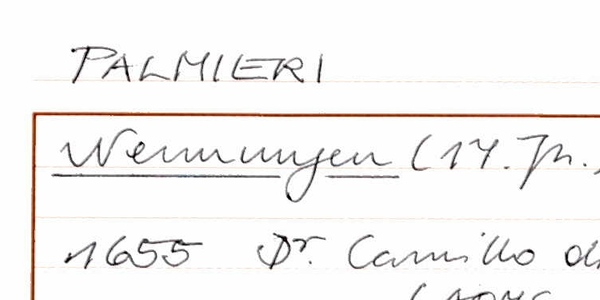 PALMIERI
Nennungen (17. Jh.)
1655 Dr. Camillo